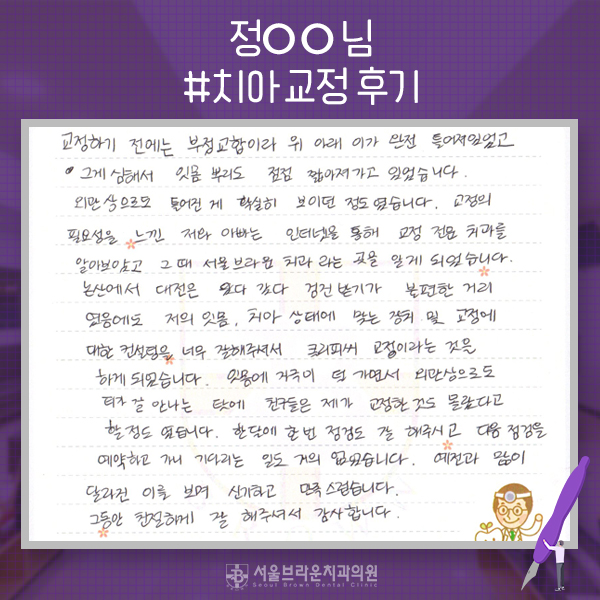 정○○님
#치아교정 후기
교정하기 전에는 부정교합이라 위 아래 이가 완전 틀어져있었고
그게 심해서 잇몸 뿌리도 점점 짧아져가고 있었습니다.
외관상으로도 틀어진 게 확실히 보이던 정도였습니다. 교정의
필요성을 느낀 저와 아빠는 인터넷을 통해 교정 전문 치과를
알아보았고 그 때 서울브라운 치과라는 곳을 알게 되었습니다.
논산에서 대전은 왔다 갔다 검진 받기가 불편한 거리
였음에도 저의 잇몸, 치아 상태에 맞는 장치 및 교정에
대한 컨설팅을 너무 잘해주셔서 클리피씨 교정이라는 것을
하게 되었습니다. 잇몸에 자극이 덜 가면서 외관상으로도
티가 잘 안나는 탓에 친구들은 제가 교정한것도 몰랐다고
할 정도 였습니다. 한달에 한번 점검도 잘 해주시고 다음 점검을
예약하고 가니 기다리는 일도 거의 없었습니다. 예전과 많이
달라진 이를 보며 신기하고 만족스럽습니다.
그동안 친절하게 잘 해주셔서 감사합니다.
서울브라운치과의원
Seoul Brown Dental Clinic